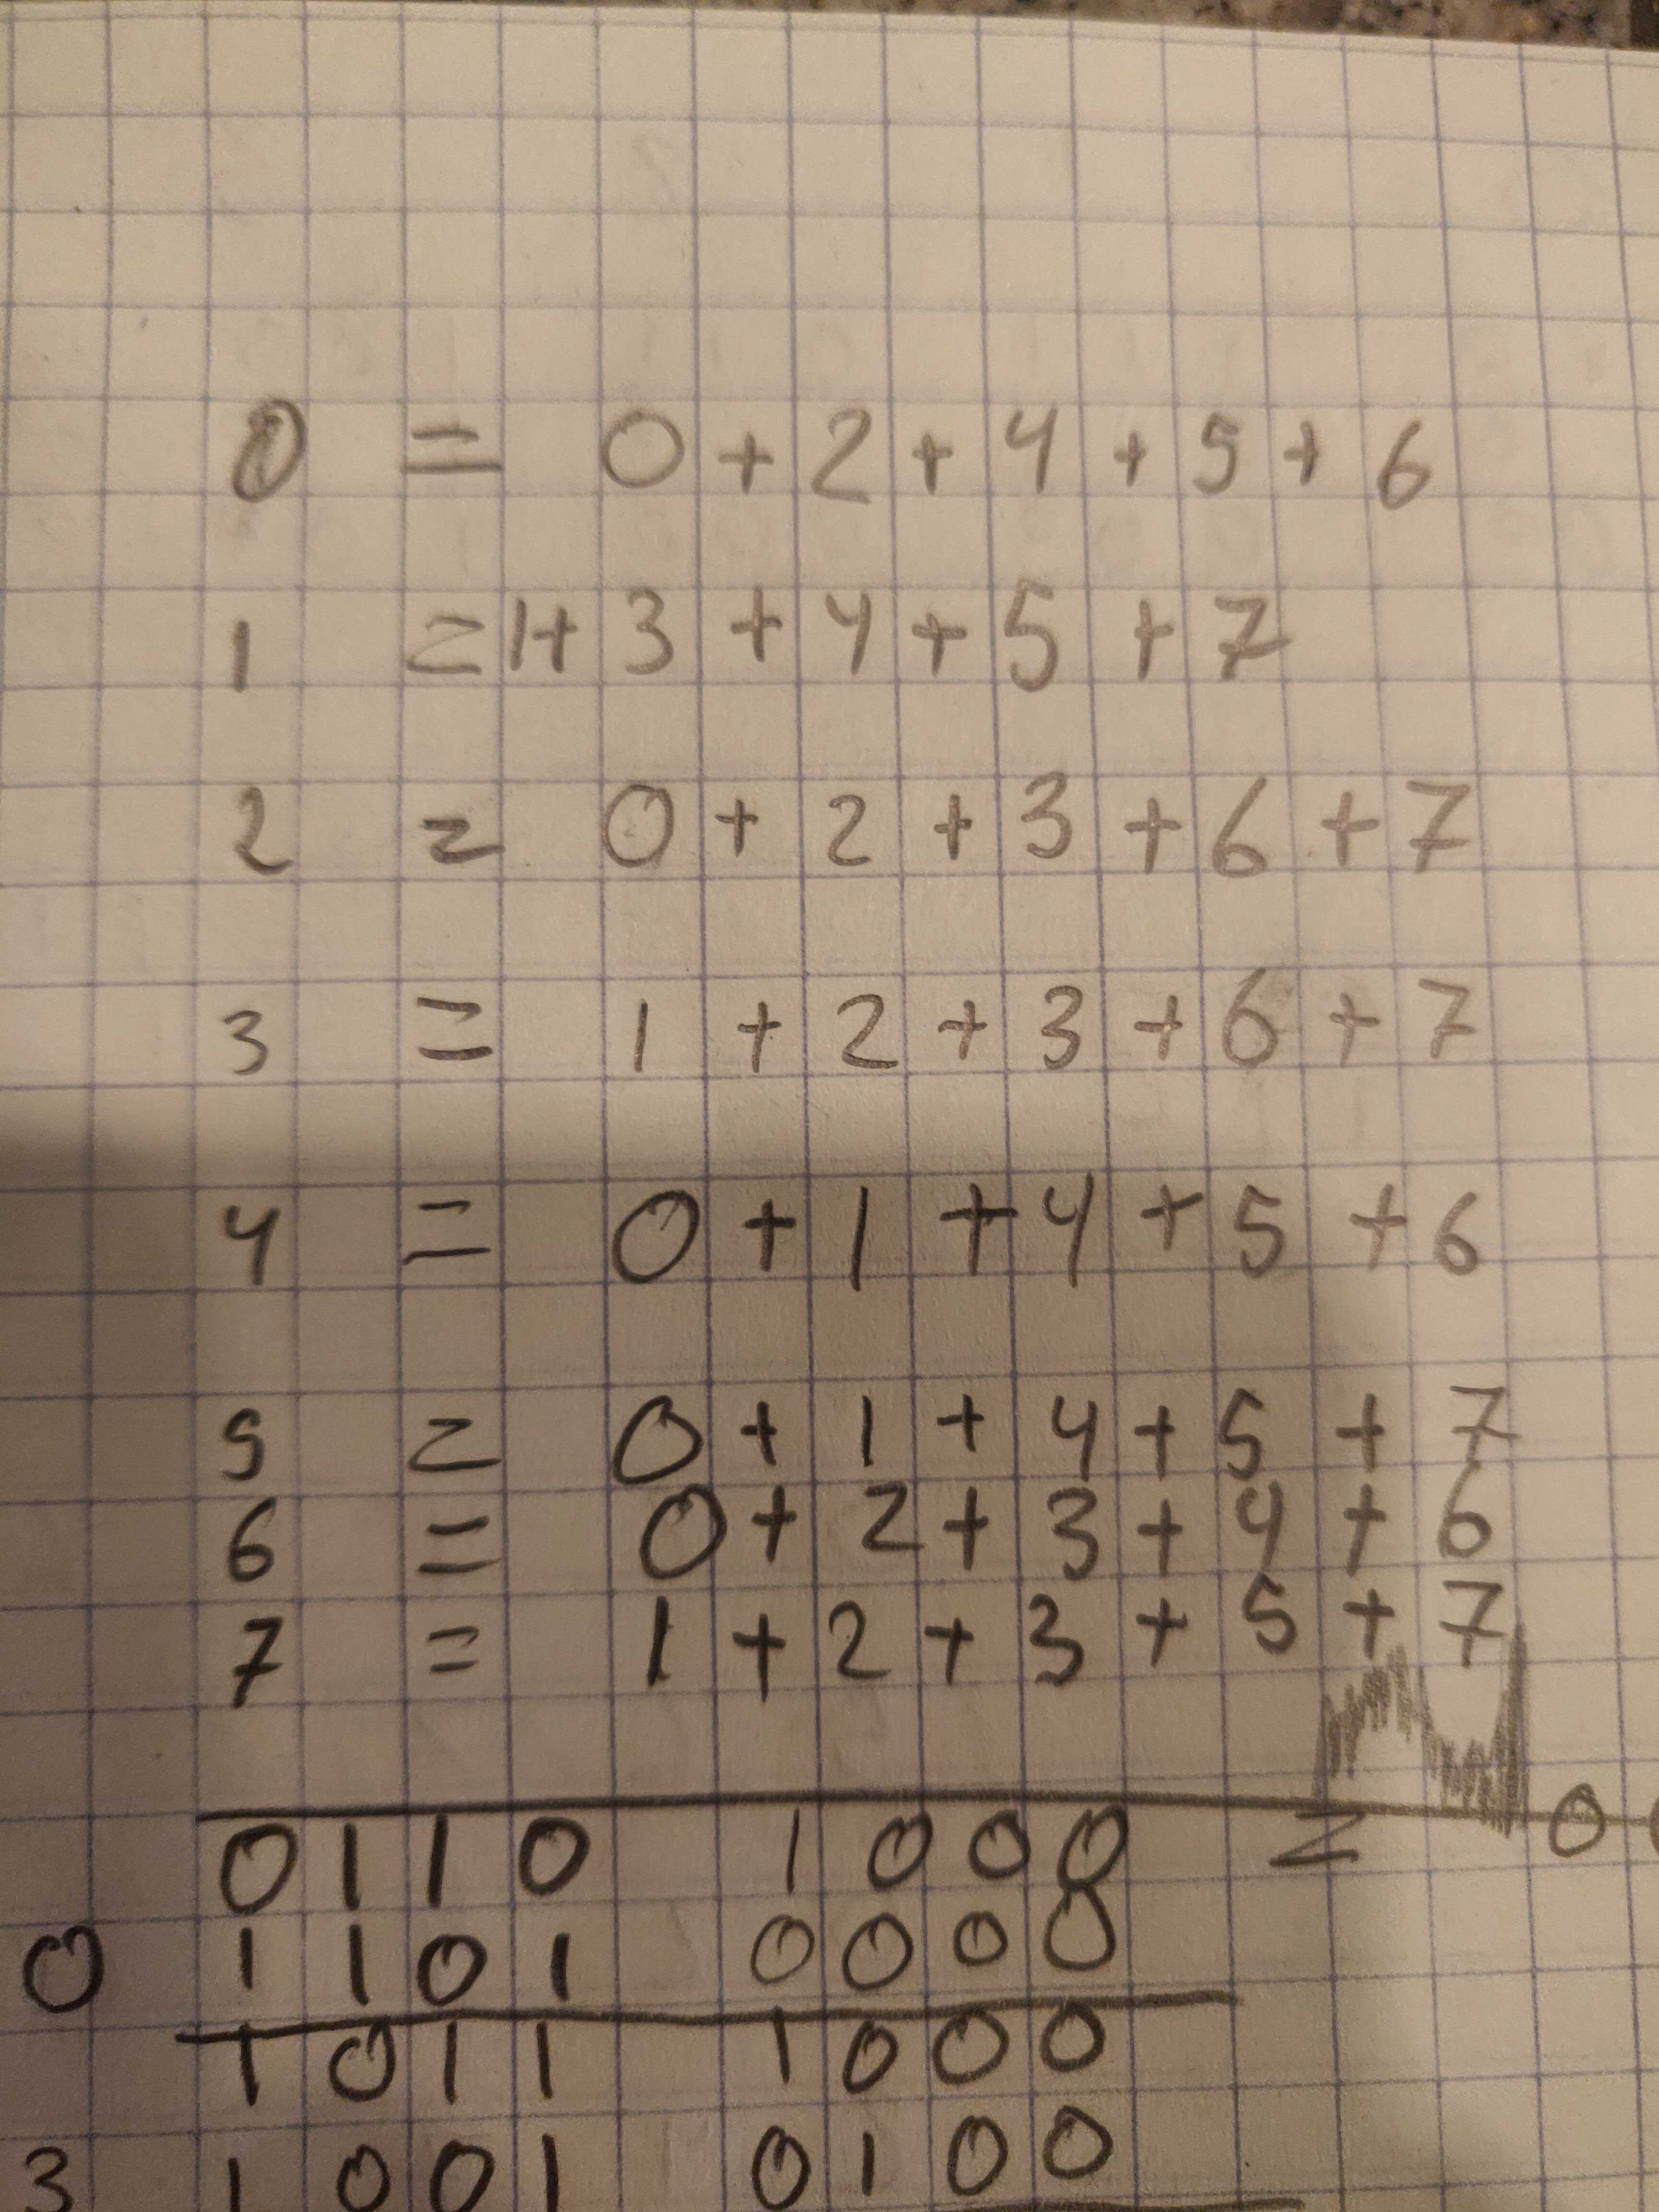 0 = 0 + 2 + 4 + 5 + 6
1 = 1 + 3 + 4 + 5 + 7
2 = 0 + 2 + 3 + 6 + 7
3 = 1 + 2 + 3 + 6 + 7
4 = 0 + 1 + 4 + 5 + 6
5 = 0 + 1 + 4 + 5 + 7
6 = 0 + 2 + 3 + 4 + 6
7 = 1 + 2 + 3 + 5 + 7
0110 1000 = 0
0 1101 0000
1011 1000
3 1001 0100